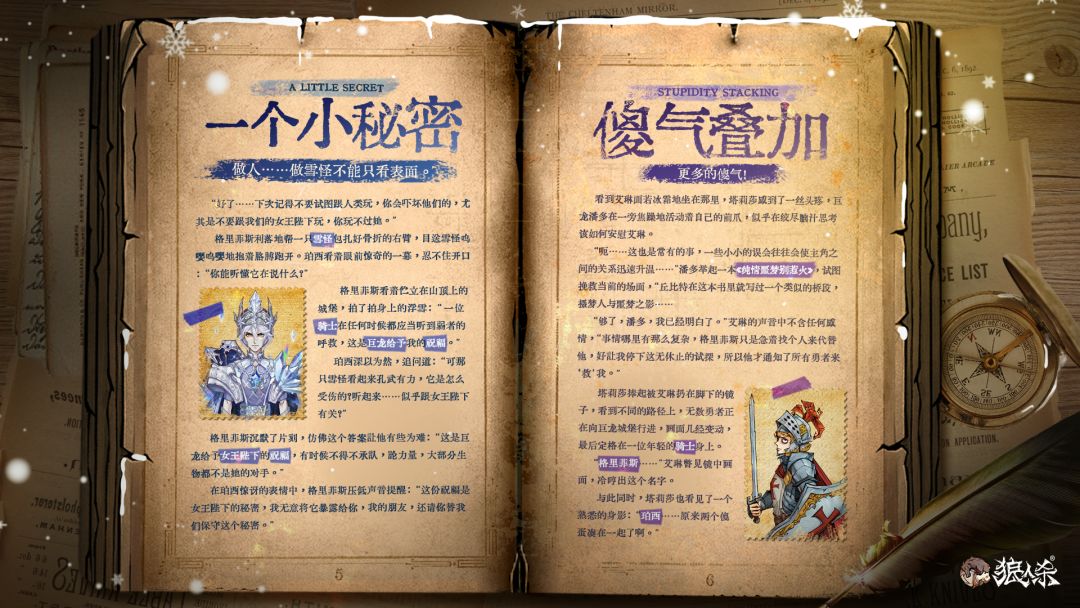 THE CHELTENHAM MIRROR.
A LITTLE SECRET
一个小秘密
做人……做雪怪不能只看表面。
“好了……下次记得不要试图跟人类玩，你会吓坏他们的，尤
其是不要跟我们的女王陛下玩，你玩不过她。”
格里菲斯利落地帮一只雪怪包扎好骨折的右臂，目送雪怪呜
嘤呜嘤地抱着胳膊跑开。珀西看着眼前惊奇的一幕，忍不住开口
：“你能听懂它在说什么？”
格里菲斯看着伫立在山顶上的
城堡，拍了拍身上的浮雪：“一位
骑士在任何时候都应当听到弱者的
呼救，这是巨龙给予我的祝福。”
珀西深以为然，追问道：“可那
只雪怪看起来孔武有力，它是怎么
受伤的？听起来……似乎跟女王陛下
有关？”
格里菲斯沉默了片刻，仿佛这个答案让他有些为难：“这是巨
龙给予女王陛下的祝福，有时候不得不承认，跪力量，大部分生
物都不是她的对手。”
在珀西惊讶的表情中，格里菲斯压低声音提醒：“这份祝福是
女王陛下的秘密，我无意将它暴露给你，我的朋友，还请你替我
们保守这个秘密。”
5
STUPIDITY STACKING
傻气叠加
更多的傻气！
看到艾琳面若冰霜地坐在那里，塔莉莎感到了一丝头疼，巨
龙潘多在一旁焦躁地活动着自己的前爪，似乎在绞尽脑汁思考
该如何安慰艾琳。
“呃……这也是常有的事，一些小小的误会往往会使主角之
间的关系迅速升温……”潘多举起一本《纯情噩梦别惹火》，试图
挽救当前的场面，“丘比特在这本书里就写过一个类似的桥段，
摄梦人与噩梦之影……
“够了，潘多，我已经明白了。”艾琳的声音中不含任何感
情，“事情哪里有那么复杂，格里菲斯只是急着找个人来代替
他，好让我停下这无休止的试探，所以他才通知了所有勇者来
‘救’我。”
塔莉莎捧起被艾琳扔在脚下的镜
子，看到不同的路径上，无数勇者正
在向巨龙城堡行进，画面几经变动，
最后定格在一位年轻的骑士身上。
“格里菲斯……”艾琳瞥见镜中画
面，冷哼出这个名字。
与此同时，塔莉莎也看见了一个
熟悉的身影：“珀西……原来两个傻
蛋凑在一起了啊。”
6
ICE LIST
APPLICATION.
狼人杀